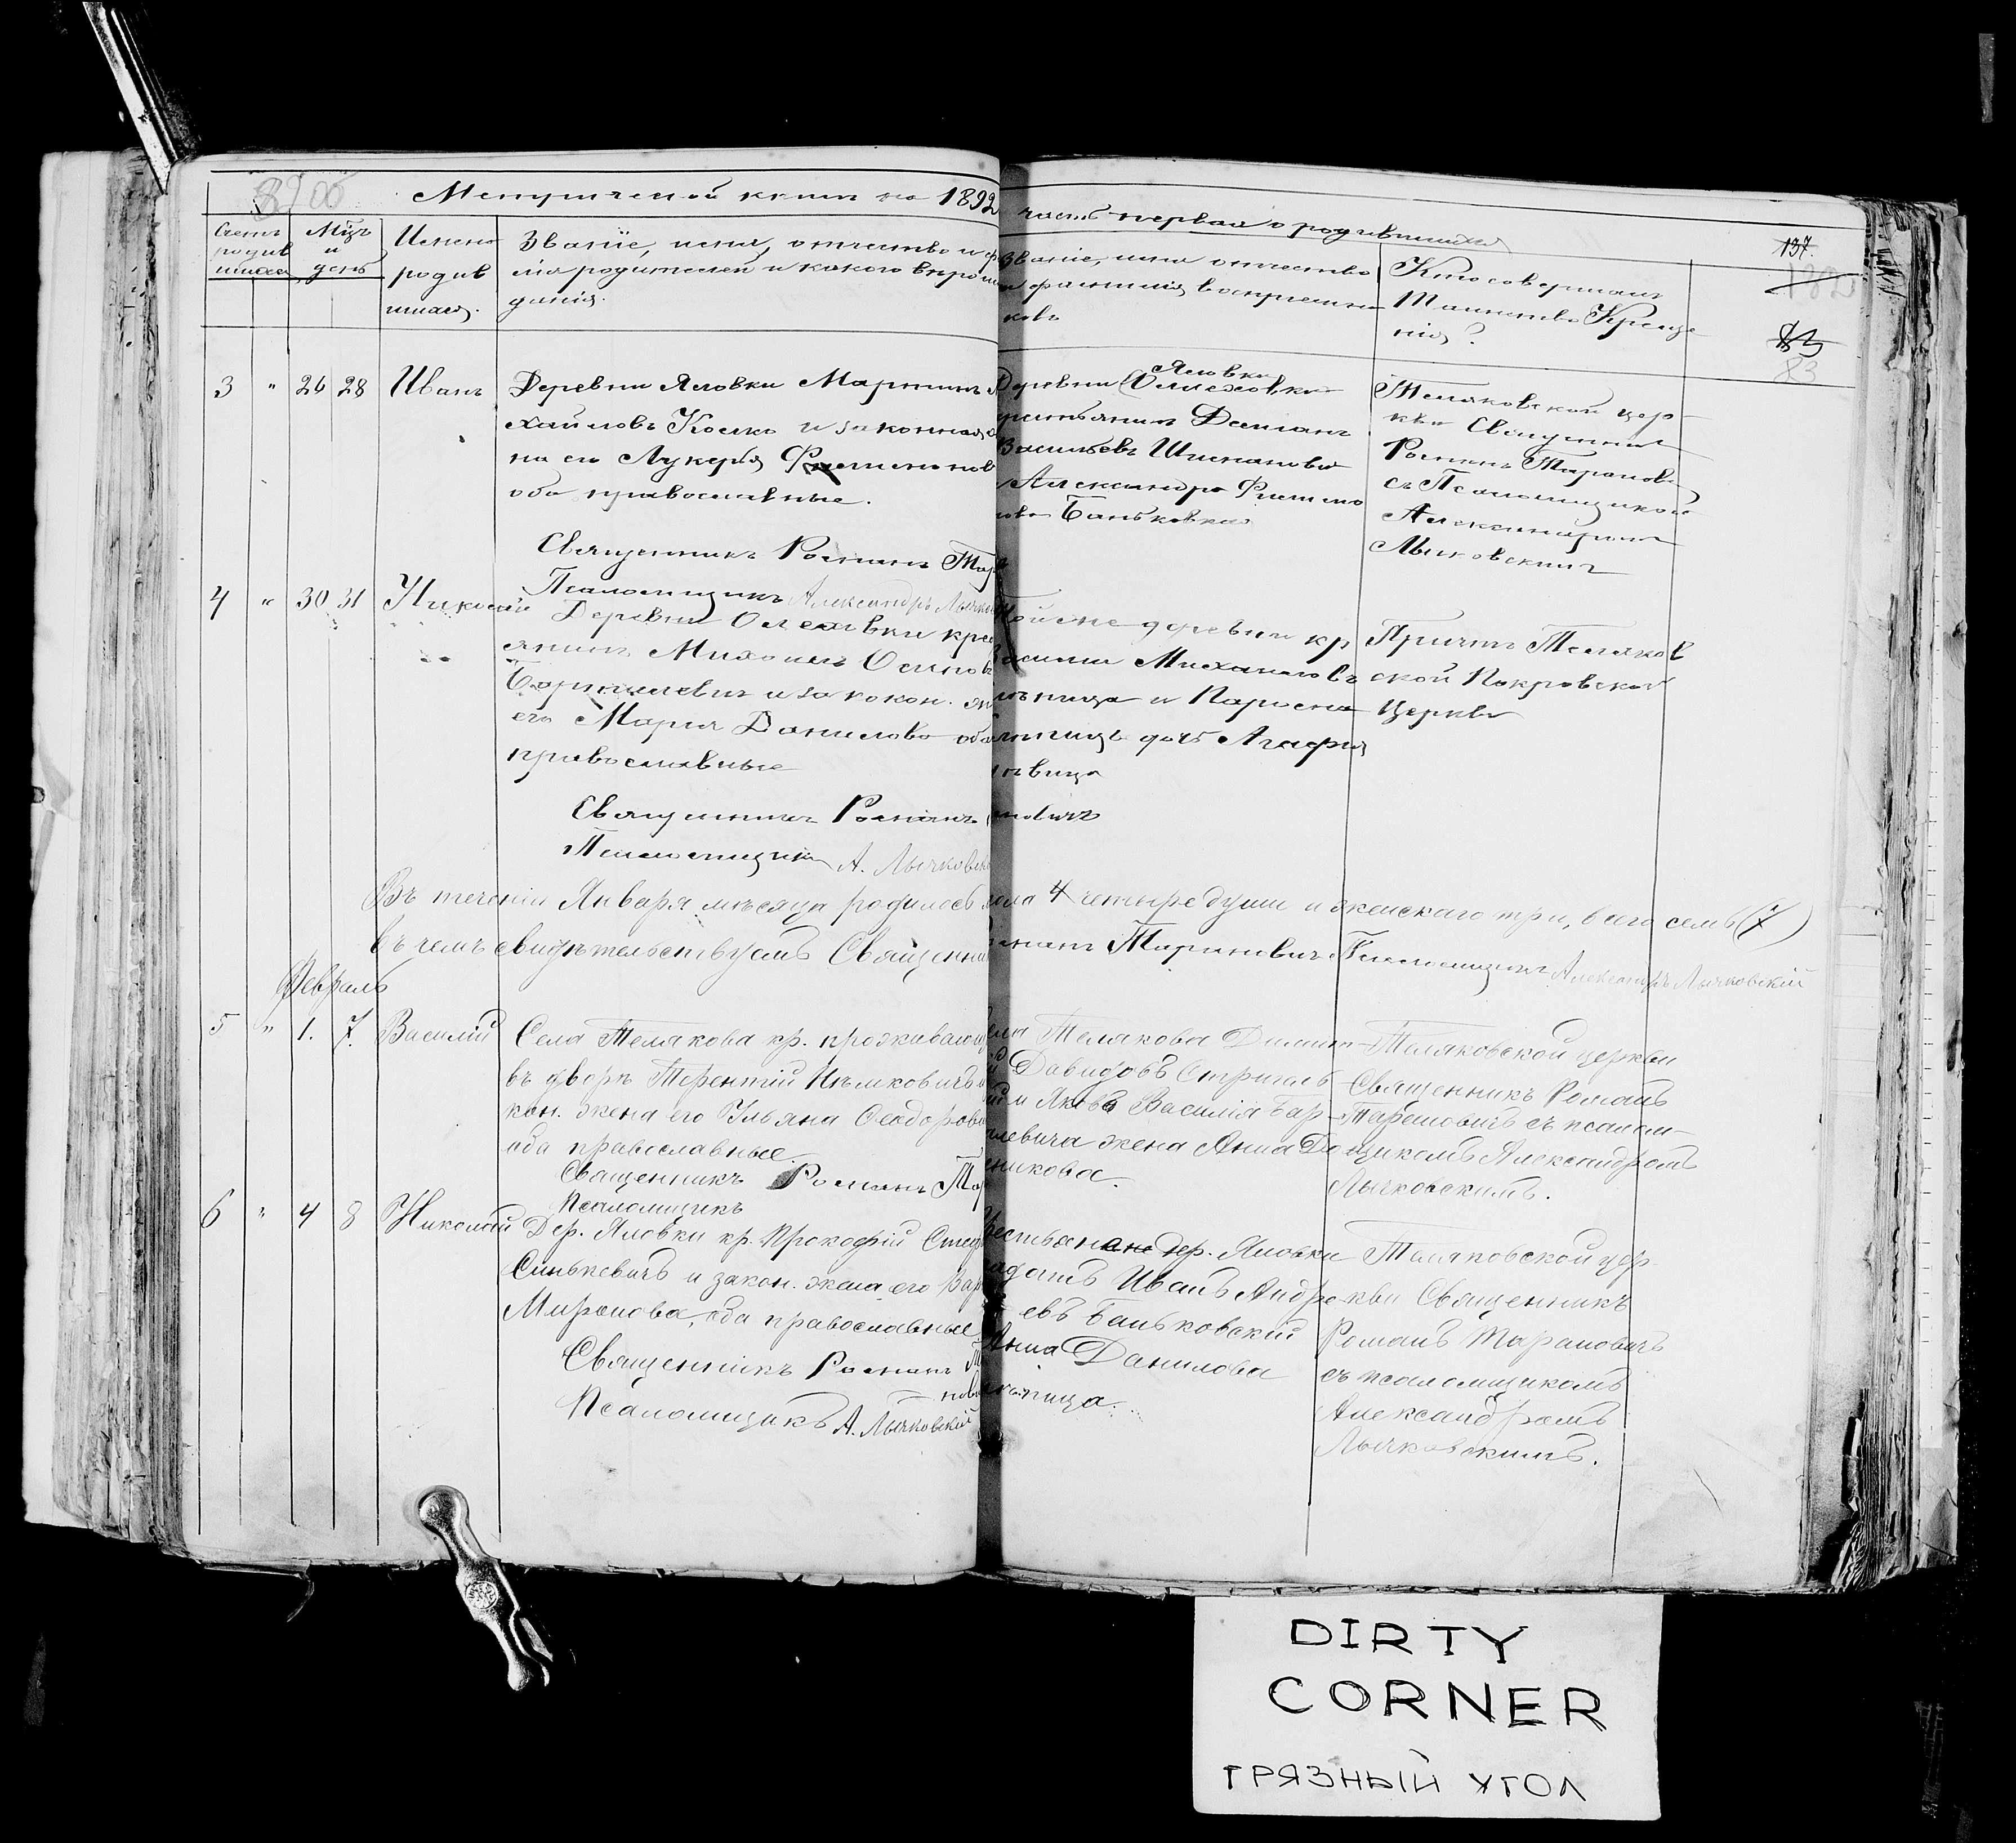 Метрической книги на 1892
часть первая о родившихся
137.
Счетъ родив шихся
Мцъ и день
Имена родив шихся.
Званіе, имя, отчество и фа
мія родителей и какого вѣроиспо
данія.
Званіе, имя отчество
и фамилія воспріемни
ковъ
Кто совершалъ
Таинство Креще
нія?
83
3 " 26 28 Иванъ
Деревни Яловки Мартинъ
хайловъ Коско и законная
на его Лукерія
оба православные.
Священникъ Романъ Тар
Псаломщикъ Александръ Лычков
Яловки
Деревни
Даміанъ
Васильевъ
Александра
Баньковская
Теляковской цер-
кви Священникъ
Романъ Таранов
съ Псаломщикомъ
Александромъ
Лычковскимъ
4 " 30 31 Николай
Деревни Олеховки крес
янинъ Михаилъ Осиповъ
и закокон.
его Марія Данилова оба
православные
Священникъ Романъ
Псаломщикъ А. Лычковск
Тойже деревни кр
Михаиловъ
и
дочь Агафія
Причтъ Теляков
ской Покровской
Церкви
Въ теченіи Января мѣсяца родилось
пола 4 четыре души и женскаго три, всего семь (7)
въ чемъ свидѣтельствуемъ Священни
Романъ Тарановичъ Псаломщикъ Александръ Лычковскій
Февраль
5 " 1. 7. Василій
Села Телякова кр. проживающ
въ дворѣ Терентій
кон. жена его Ульяна Ѳеодорова
оба православные.
Священникъ Романъ Тар
Псаломщикъ
села Телякова
Давидовъ
и Яков Василія Бар-
левича жена Анна
Теляковской церкви
Священникъ Романъ
Тарановичъ съ псалом-
щикомъ Александромъ
Лычковскимъ.
6 " 4 8 Николай
Дер. Яловки кр. Прокофій Стец
Синькевичъ и закон. жена его Вар
Миронова, оба православные
Священникъ Романъ Та
нов
Псаломщикъ А. Лычковскій
дер. Яловки
Иванъ Андре
евъ Баньковскій
Анна Данилова
Теляковской цер-
кви Священникъ
Романъ Тарановичъ
съ псаломщикомъ
Александромъ
Лычковскимъ.
DIRTY
CORNER
ГРЯЗНЫЙ УГОЛ